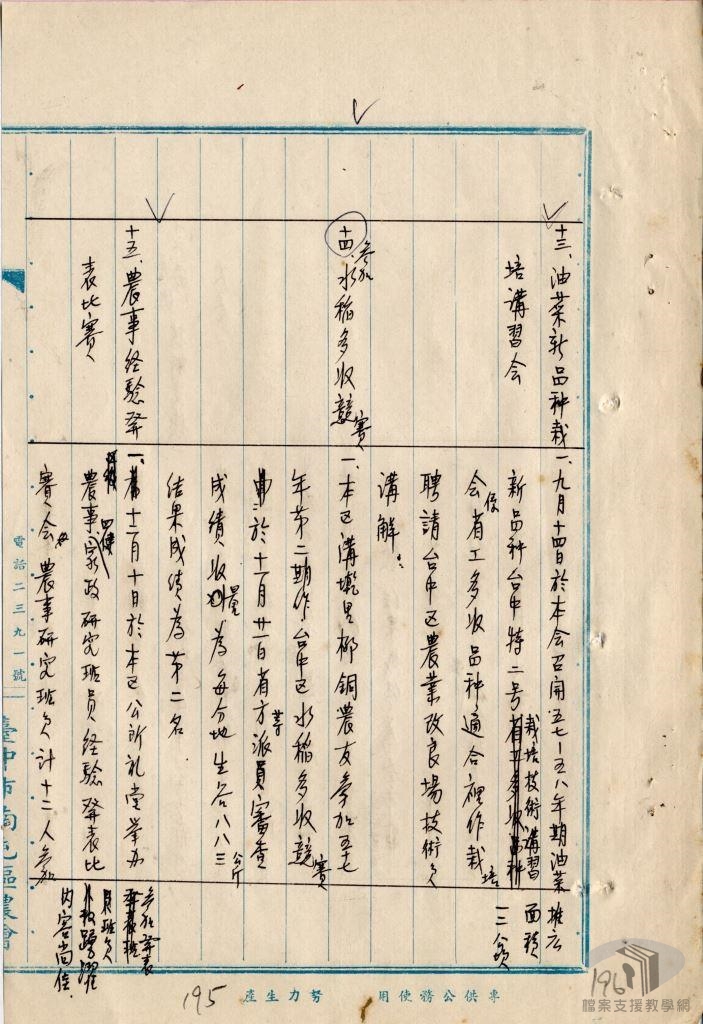 十三、油菜新品种栽
培講習会
一、九月十四日於本会召開五七-五八年期油菜
新品种台中特二号栽培技術講習
会省工多收品种適合裡作栽培
聘請台中区農業改良場技術員
講解。
推広
面積
十四、参加水稲多收競賽
一、本区溝墘里柳銅農友参加五十七
年第二期作台中区水稲多收競賽
於十一月廿一日省方等派員審查
成績收量為每分地生谷八八三公斤
結果成績為第二名
十五、農事经驗發
表比賽
一、十二月十日於本区公所礼堂举办
農事四健家政研究班員经驗發表比
賽会农事研究班員計十二人参加
参加發表
班員
踴躍
内容尚佳
電話二三九一號
臺中市南屯區農會
專供公務使用
努力生產
195
196
檔案支援教學網